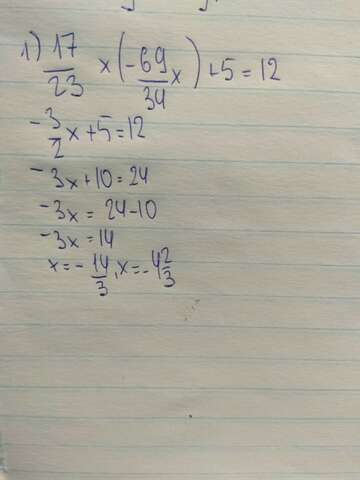 1) 17/23 x (-69/34 x) +5=12
-3/2 x+5=12
-3x+10=24
-3x = 24-10
-3x=14
x=-14/3, x=-4 2/3